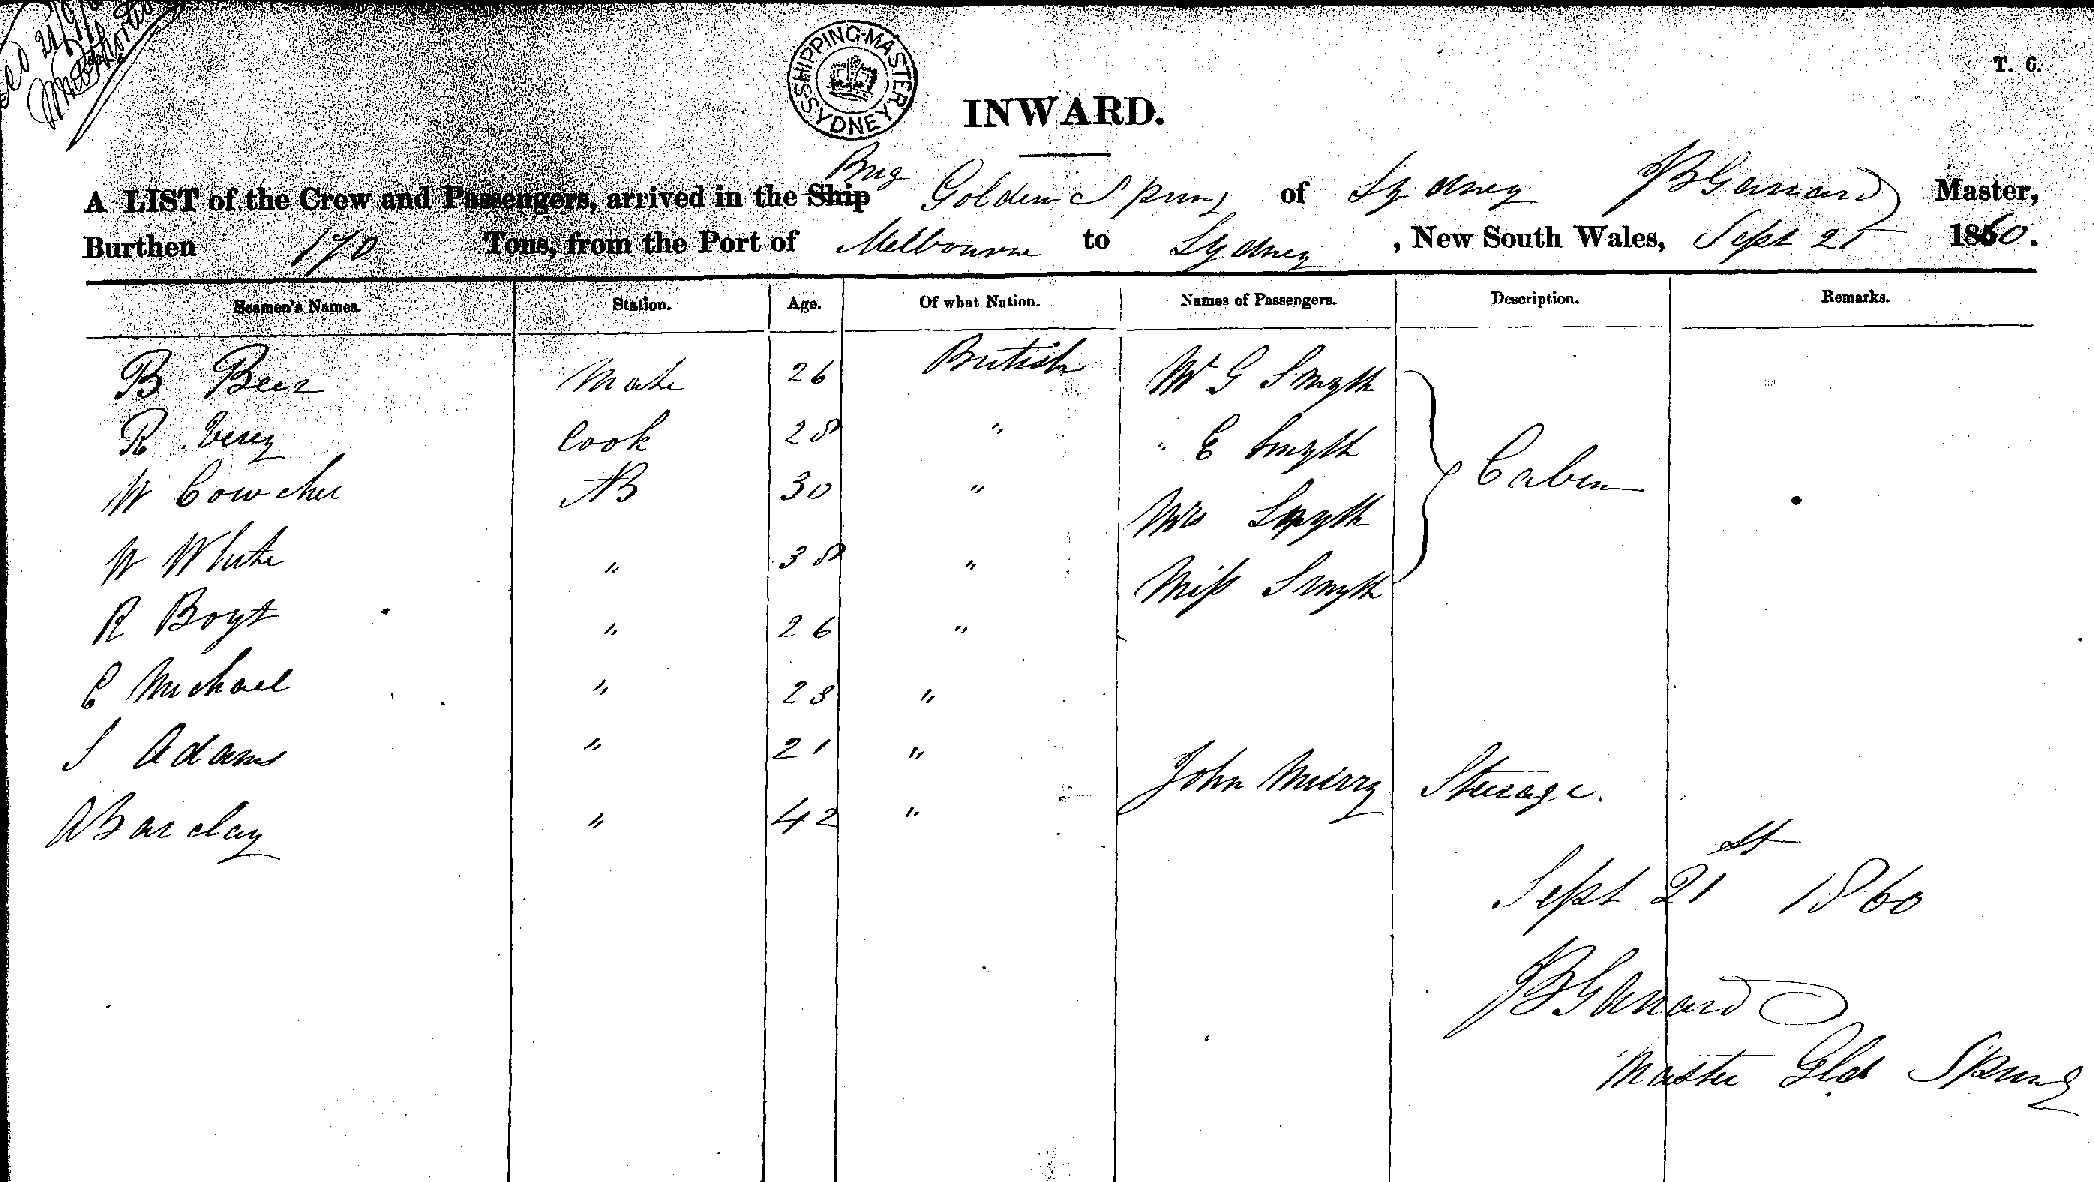 SHIPPING MASTER SYDNEY
T. C.
INWARD.
Brig
A LIST of the Crew and Passengers, arrived in the Ship Golden Spring of Sydney JB Garrard Master,
Burthen 170 Tons, from the Port of Melbourne to Sydney, New South Wales, Sept 21 1860.
Seamen's Names. Station. Age. Of what Nation. Names of Passengers. Description. Remarks.
B Beer Mate 26 British Mr G Smyth
R Cook 28 " " E Smyth
W Cowcher AB 30 " Mrs Smyth Cabin
W White " 38 " Miss Smyth
R Boyt " 26 "
C Michael " 23 "
S Adams " 21 " John Murry Steerage.
A Barclay " 42 "
Sept 21st 1860
JB Garrard
Master Gld Spring